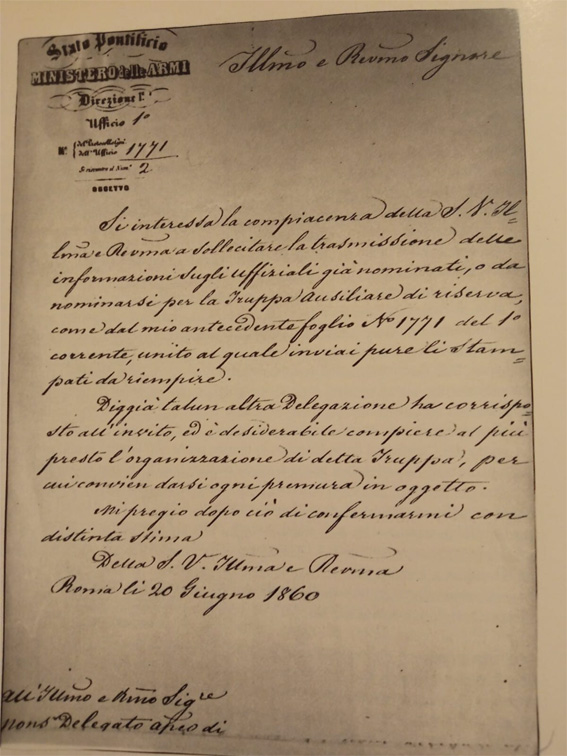 Stato Pontificio
MINISTERO delle ARMI
Direzione 1ª
Ufficio 1º
Nº del Protocollo
dell' Ufficio 1771
Si riscontra al Num.º 2
OGGETTO
Illmo e Revmo Signore
Si interessa la compiacenza della S. V. Il=
lma e Revma a sollecitare la trasmissione delle
informazioni sugli uffiziali già nominati, o da
nominarsi per la Truppa Ausiliare di riserva,
come dal mio antecedente foglio Nº 1771 del 1º
corrente, unito al quale inviai pure li Stam=
pati da riempire.
Diggià talun altra Delegazione ha corrispo=
sto all'invito, ed è desiderabile compiere al più
presto l'organizzazione di detta Truppa, per
cui convien darsi ogni premura in oggetto.
Mi pregio dopo ciò di confermarmi con
distinta stima
Della S. V. Illma e Revma
Roma li 20 Giugno 1860
All' Illmo e Rmo Sigre
Delegato di